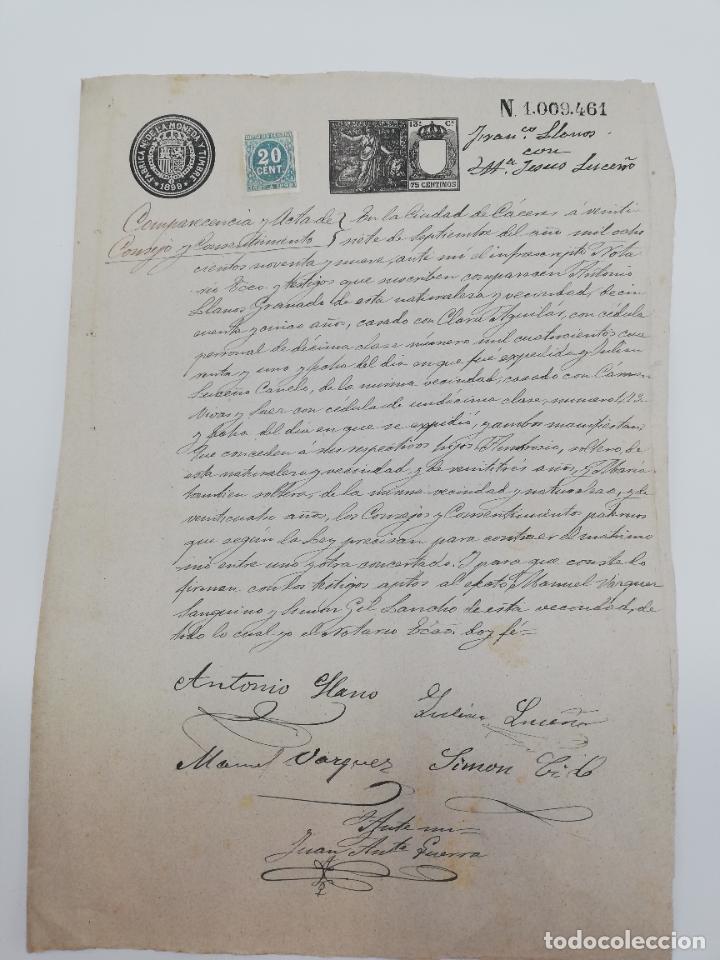 N. 1.009.461
FABRICA N. DE LA MONEDA Y TIMBRE
1899
20
CENT.
13ª Cº
75 CENTIMOS
Franco Llanos
con
Mª Jesus Luceño
Comparecencia y Acta de
Consejo y Consentimiento
En la Ciudad de Cáceres á veinti
siete de Septiembre del año mil ocho
cientos noventa y nueve, ante mi el infrascripto Nota
rio Ecco. y testigos que suscriben comparecen Antonio
Llanos Granado de esta naturaleza y vecindad, de cin
cuenta y cinco años, casado con Clara Aguilar, con cédula
personal de décima clase numero mil cuatrocientos cua
renta y uno y fecha del dia en que fue expedida y Julian
Luceño Canelo, de la misma vecindad, casado con Cármen
Vivas y Suer con cédula de undécima clase, numero 4,
y fecha del dia en que se expidió, y ambos manifiestan:
Que conceden á sus respectivos hijos Ambrosio, soltero, de
esta naturaleza y vecindad, y de veintitres años, y Maria
tambien soltera, de la misma vecindad y naturaleza, y de
veinticuatro años, los Consejos y Consentimiento paternos
que según la Ley precisan para contraer el matrimo
nio entre uno y otra concertado. Y para que conste lo
firman con los testigos aptos al efecto, Manuel Vazquez
Sanguino y Simon Gil Sancho de esta vecindad, de
todo lo cual yo el Notario Ecco. doy fé=
Antonio Llano
Julian Luceño
Manuel Vazquez
Simon Gil
Ante mi=
Juan Ante Guerra
todocoleccion.net